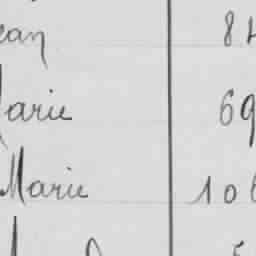 ean 84
Marie 69
Marie 106